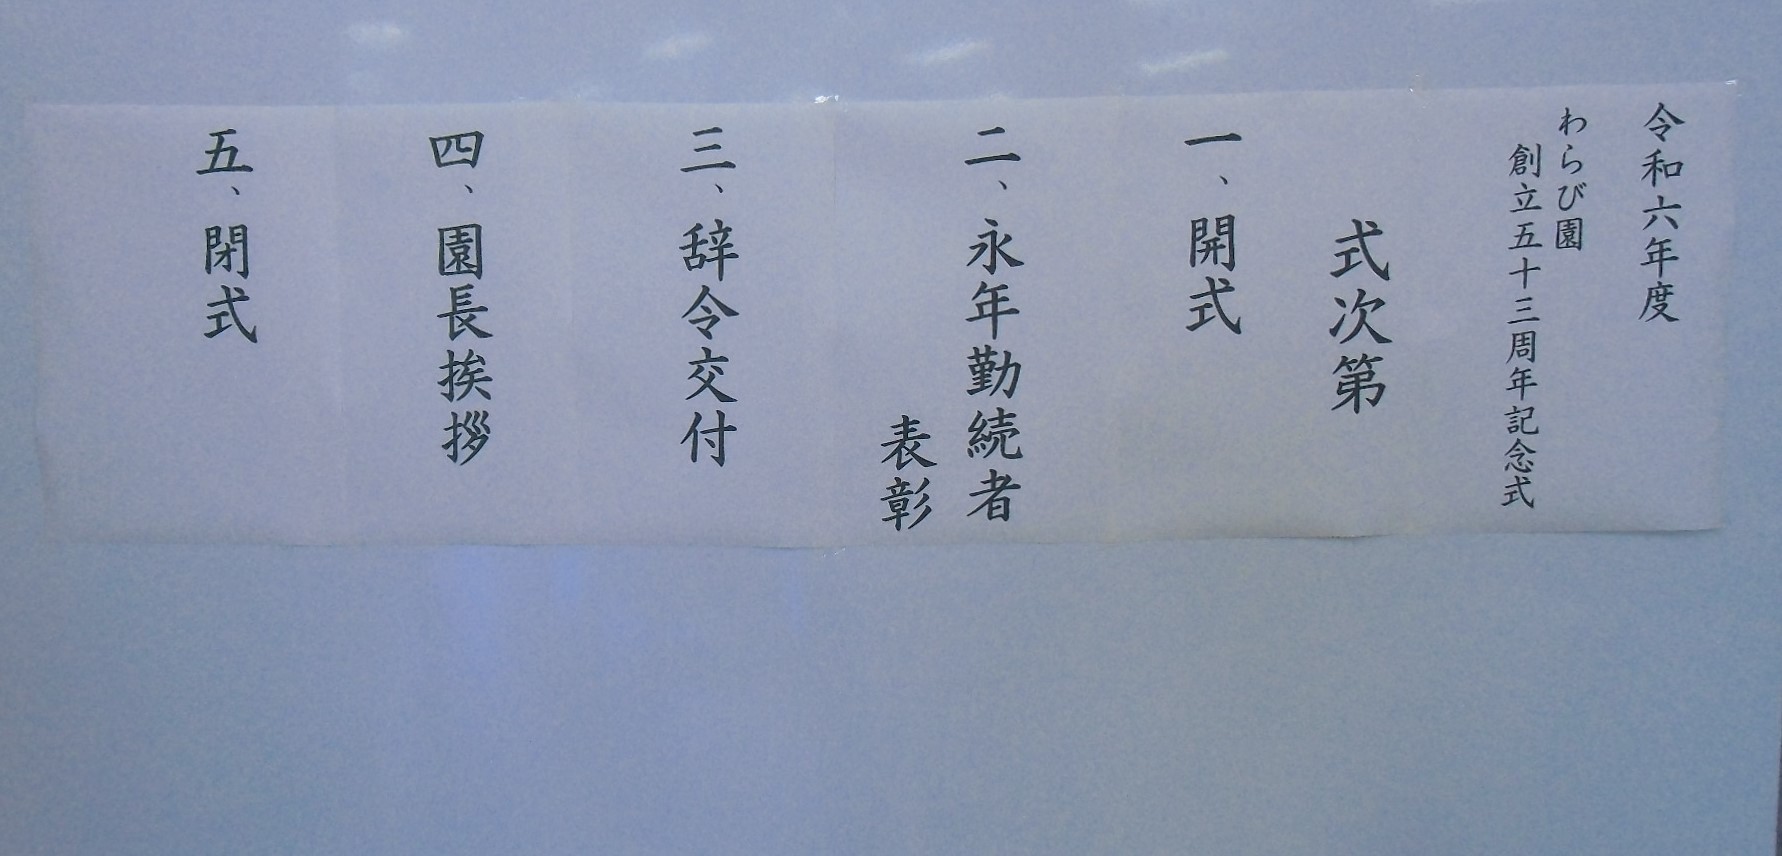 令和六年度
わらび園
創立五十三周年記念式
式次第
一、開式
二、永年勤続者
表彰
三、辞令交付
四、園長挨拶
五、閉式